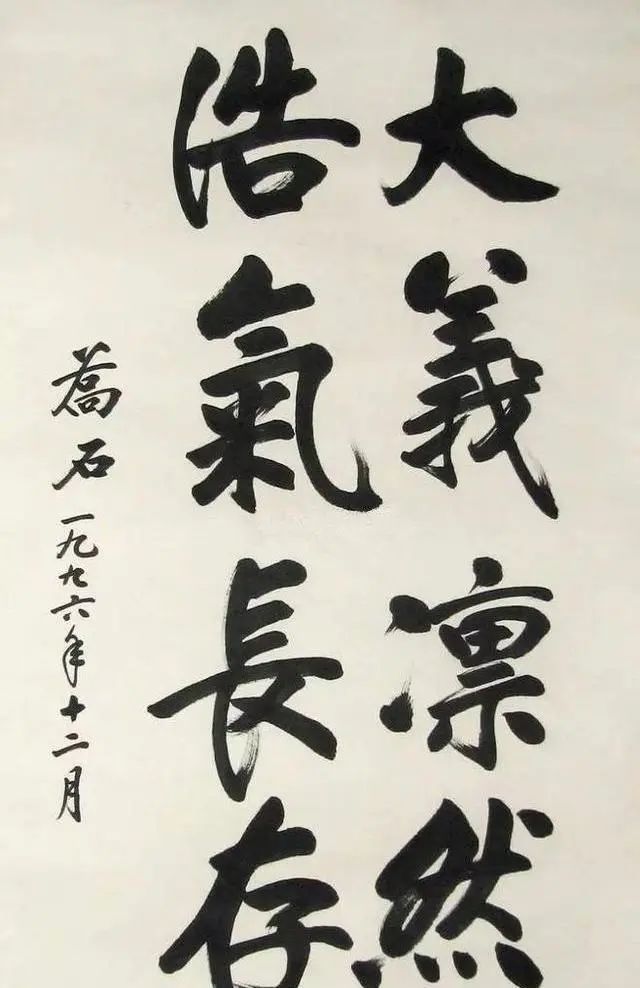 大義凛然
浩氣長存
喬石一九九六年十二月